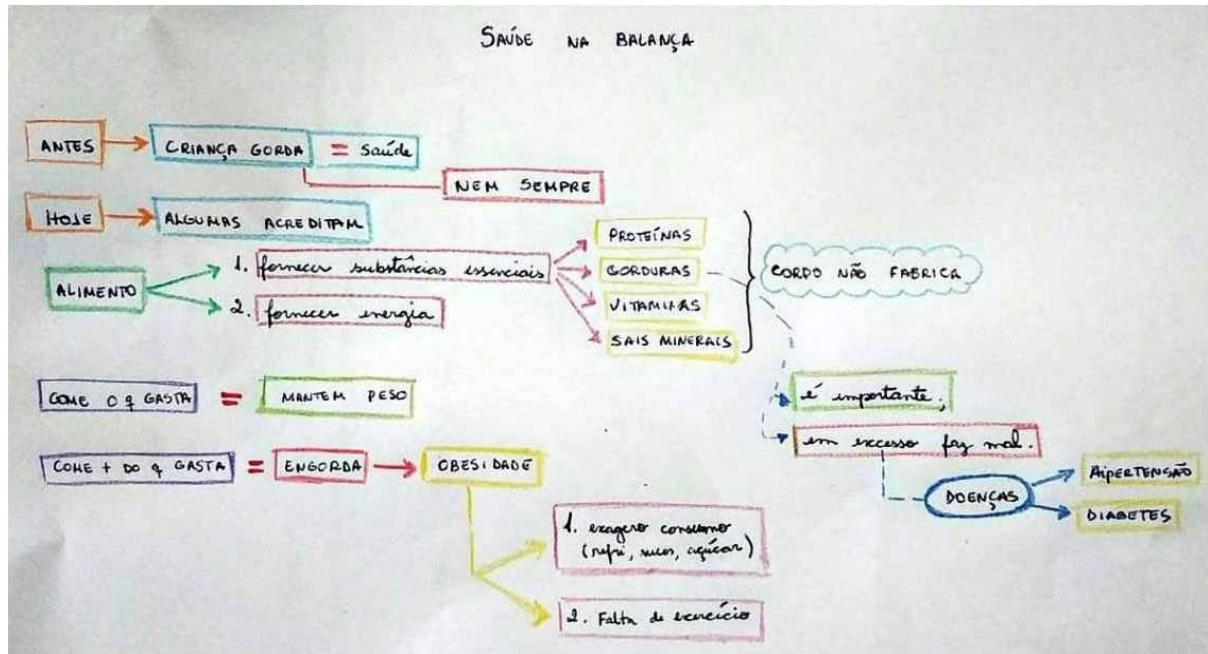 SAÚDE NA BALANÇA
ANTES
CRIANÇA GORDA = Saúde
NEM SEMPRE
HOJE
ALGUMAS ACREDITAM
ALIMENTO
1. fornecer substâncias essenciais
2. fornecer energia
PROTEÍNAS
GORDURAS
VITAMINAS
SAIS MINERAIS
CORPO NÃO FABRICA
é importante;
em excesso faz mal.
DOENÇAS
HIPERTENSÃO
DIABETES
COME O q GASTA = MANTEM PESO
COME + DO q GASTA = ENGORDA
OBESIDADE
1. exagero consumo
(refri, sucos, açúcar)
2. Falta de exercício